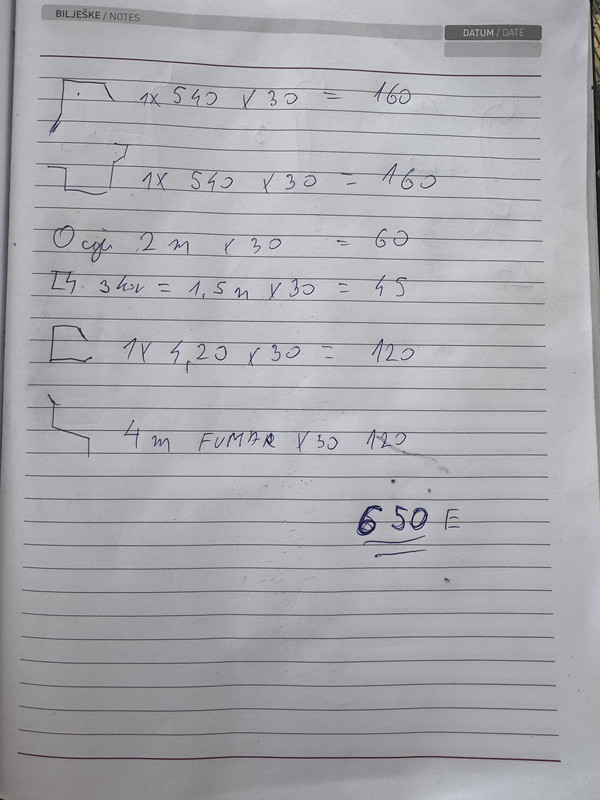 BILJEŠKE / NOTES
DATUM / DATE
1x 540 x 30 = 160
1x 540 x 30 = 160
2 m x 30 = 60
= 1,5m x 30 = 45
1x 4,20 x 30 = 120
4 m FUMAR x 30 120
650 E